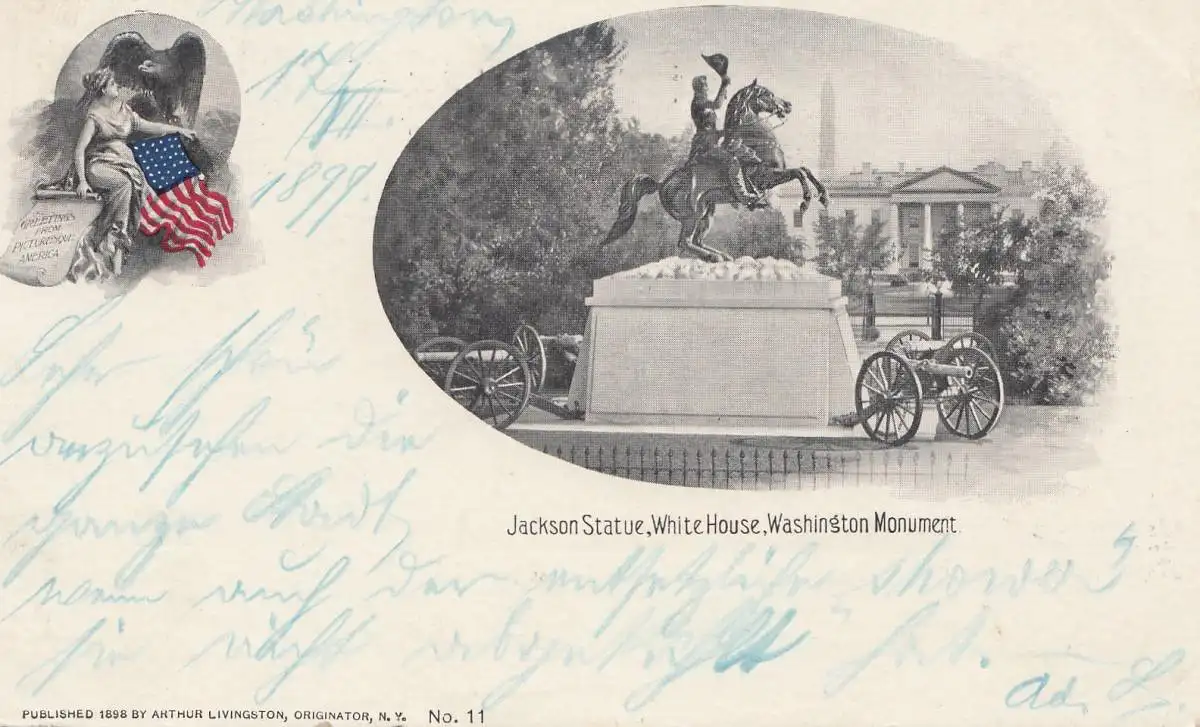 Washington
17/VII.
1899.
GREETINGS
FROM
PICTURESQUE
AMERICA
Sehr schön
anzusehen die
ganze Stadt,
wenn auch der entsetzliche
sie nicht abgekühlt hat. —
Ad. L.
Jackson Statue, White House, Washington Monument.
PUBLISHED 1898 BY ARTHUR LIVINGSTON, ORIGINATOR, N. Y. No. 11